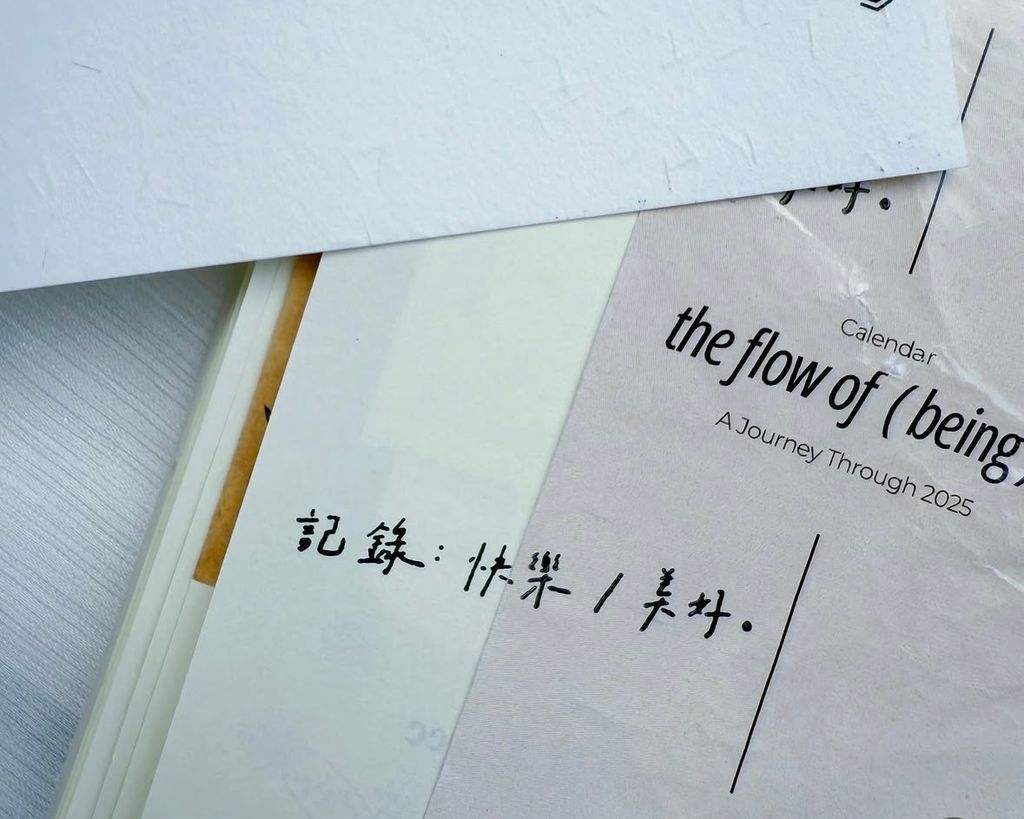 好.
Calendar
the flow of (being)
A Journey Through 2025
記錄：快樂 / 美好.